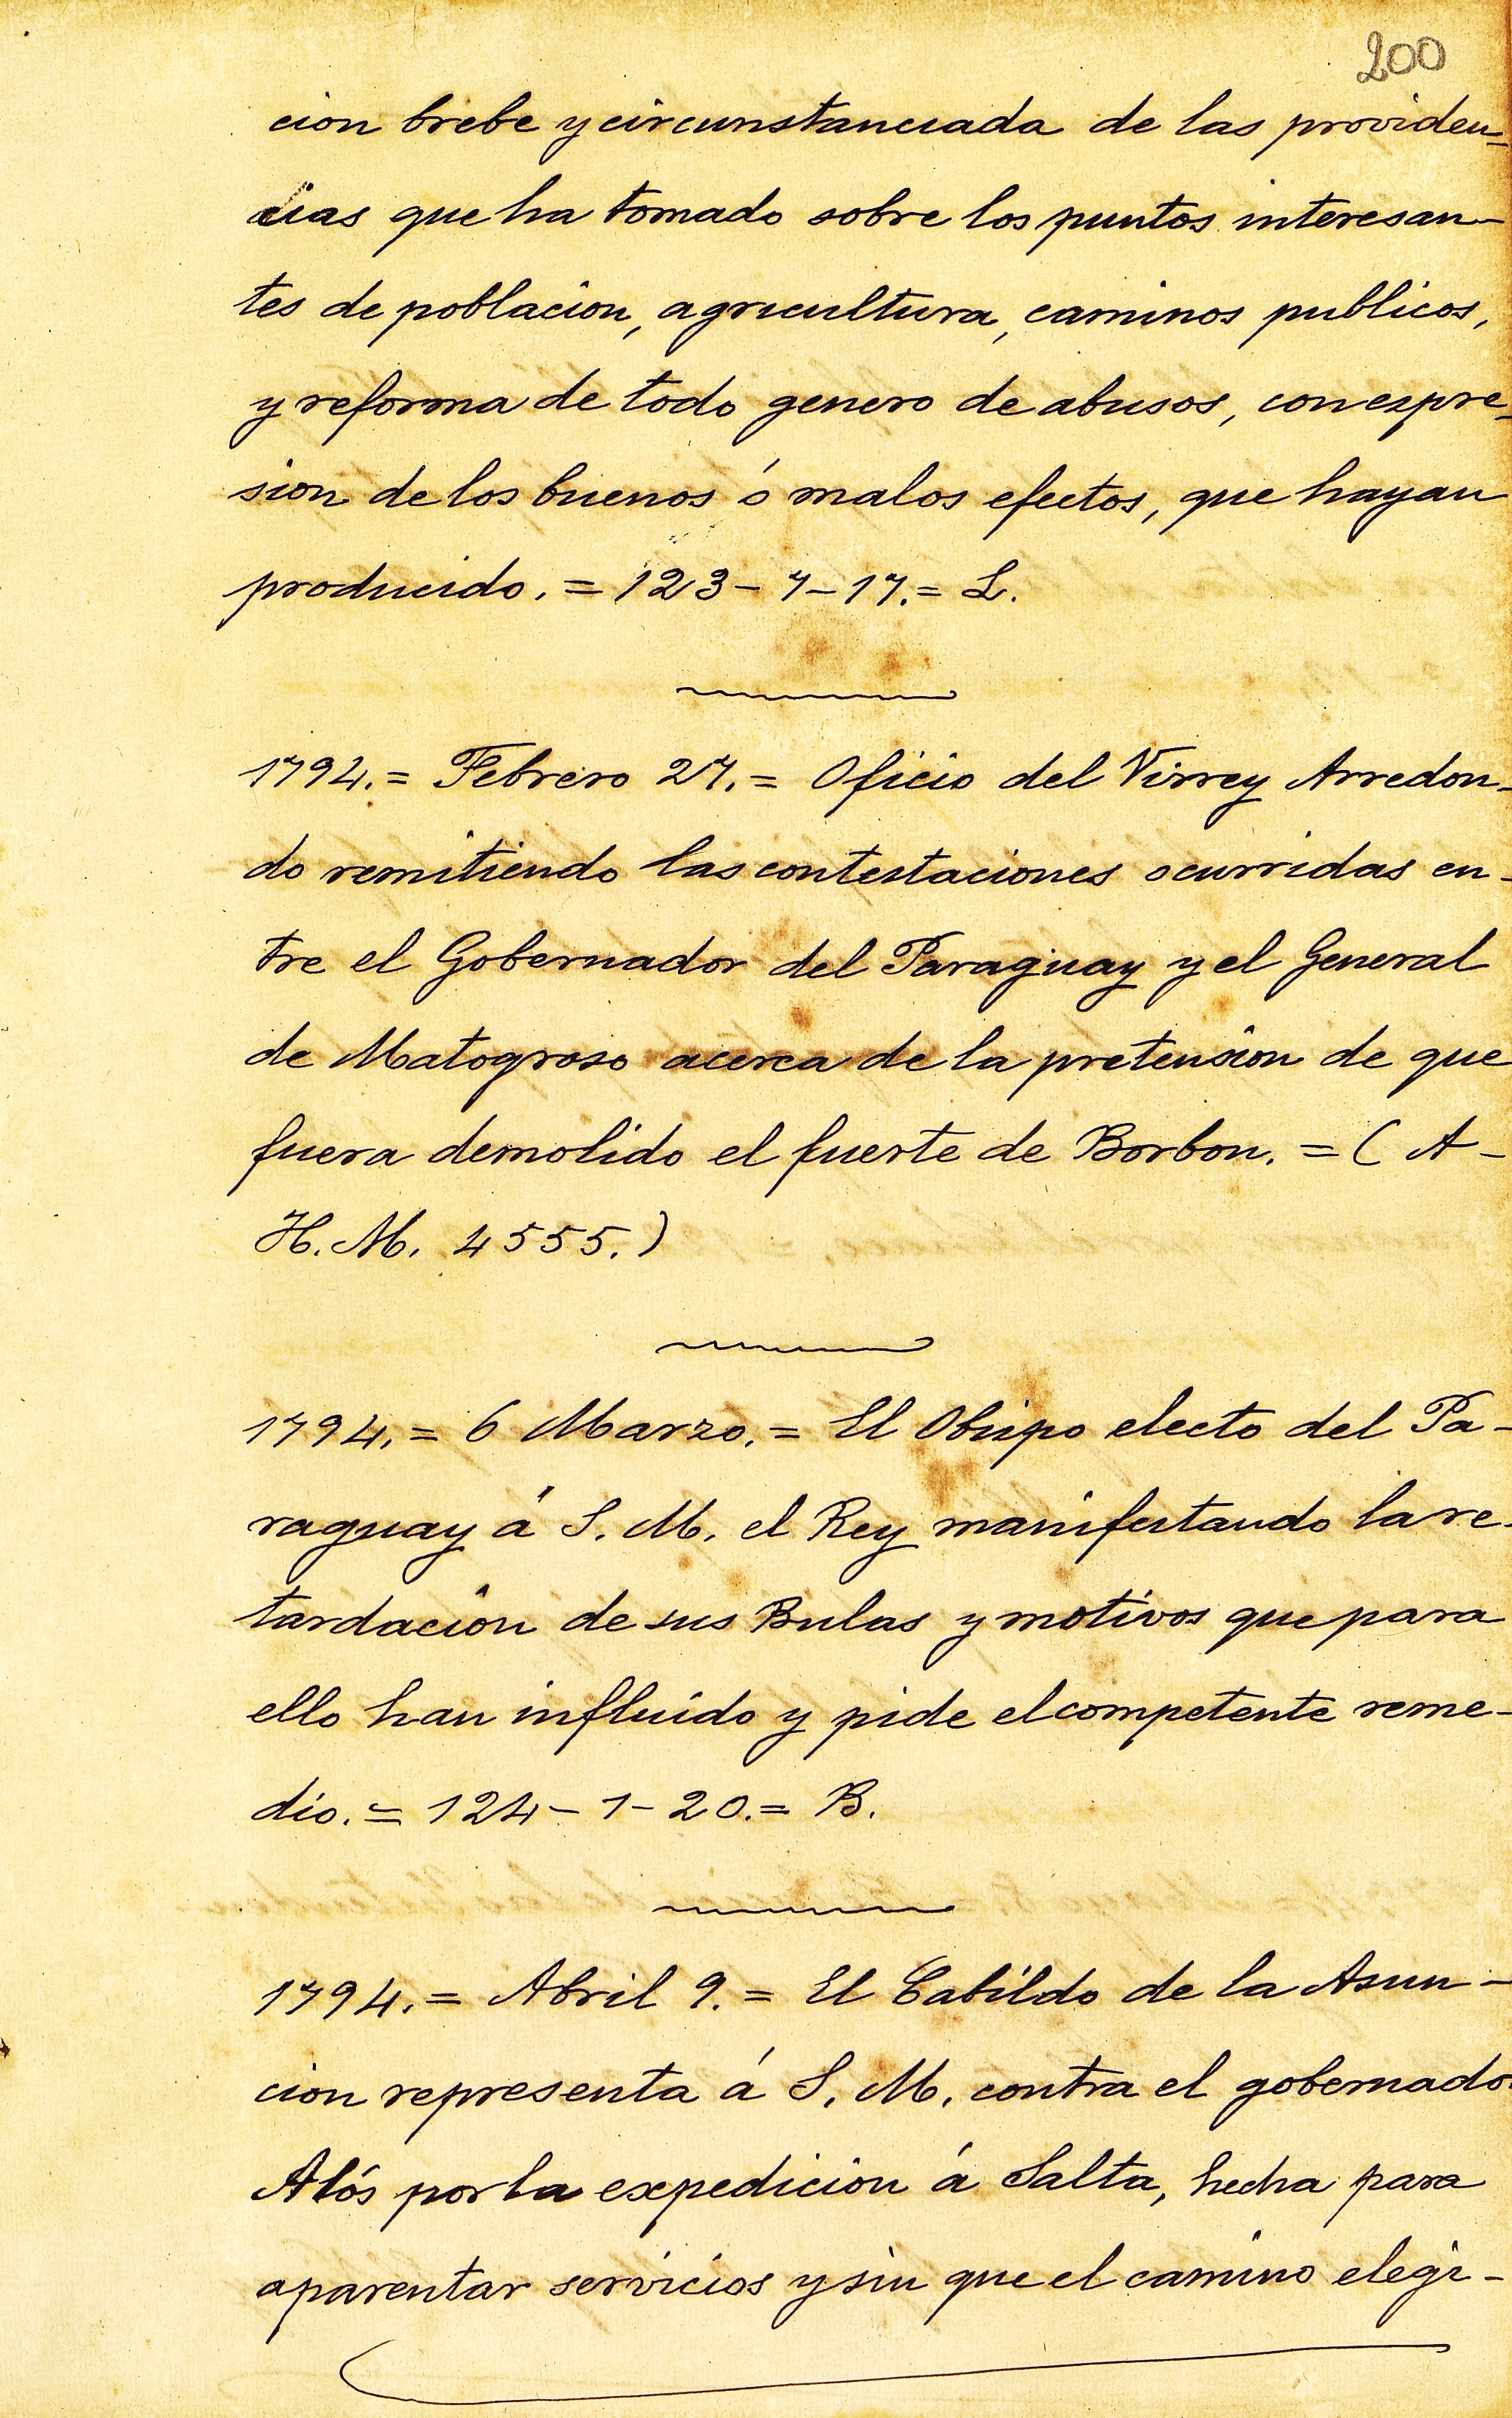 200
cion brebe y circunstanciada de las providen-
cias que ha tomado sobre los puntos interesan-
tes de poblacion, agricultura, caminos publicos,
y reforma de todo genero de abusos, con espre-
sion de los buenos ó malos efectos, que hayan
producido. = 123 - 7 - 17. = L.
1794. = Febrero 27. = Oficio del Virrey Arredon-
do remitiendo las contestaciones ocurridas en-
tre el Gobernador del Paraguay y el General
de Matogroso acerca de la pretension de que
fuera demolido el fuerte de Borbon. = ( A -
H. M. 4555. )
1794. = 6 Marzo. = El Obispo electo del Pa-
raguay á S. M. el Rey manifestando la re-
tardacion de sus Bulas y motivos que para
ello han influido y pide el competente reme-
dio. = 124 - 1 - 20. = B.
1794. = Abril 9. = El Cabildo de la Asun-
cion representa á S. M. contra el gobernador
Alós por la expedicion á Salta, hecha para
aparentar servicios y sin que el camino elegi-